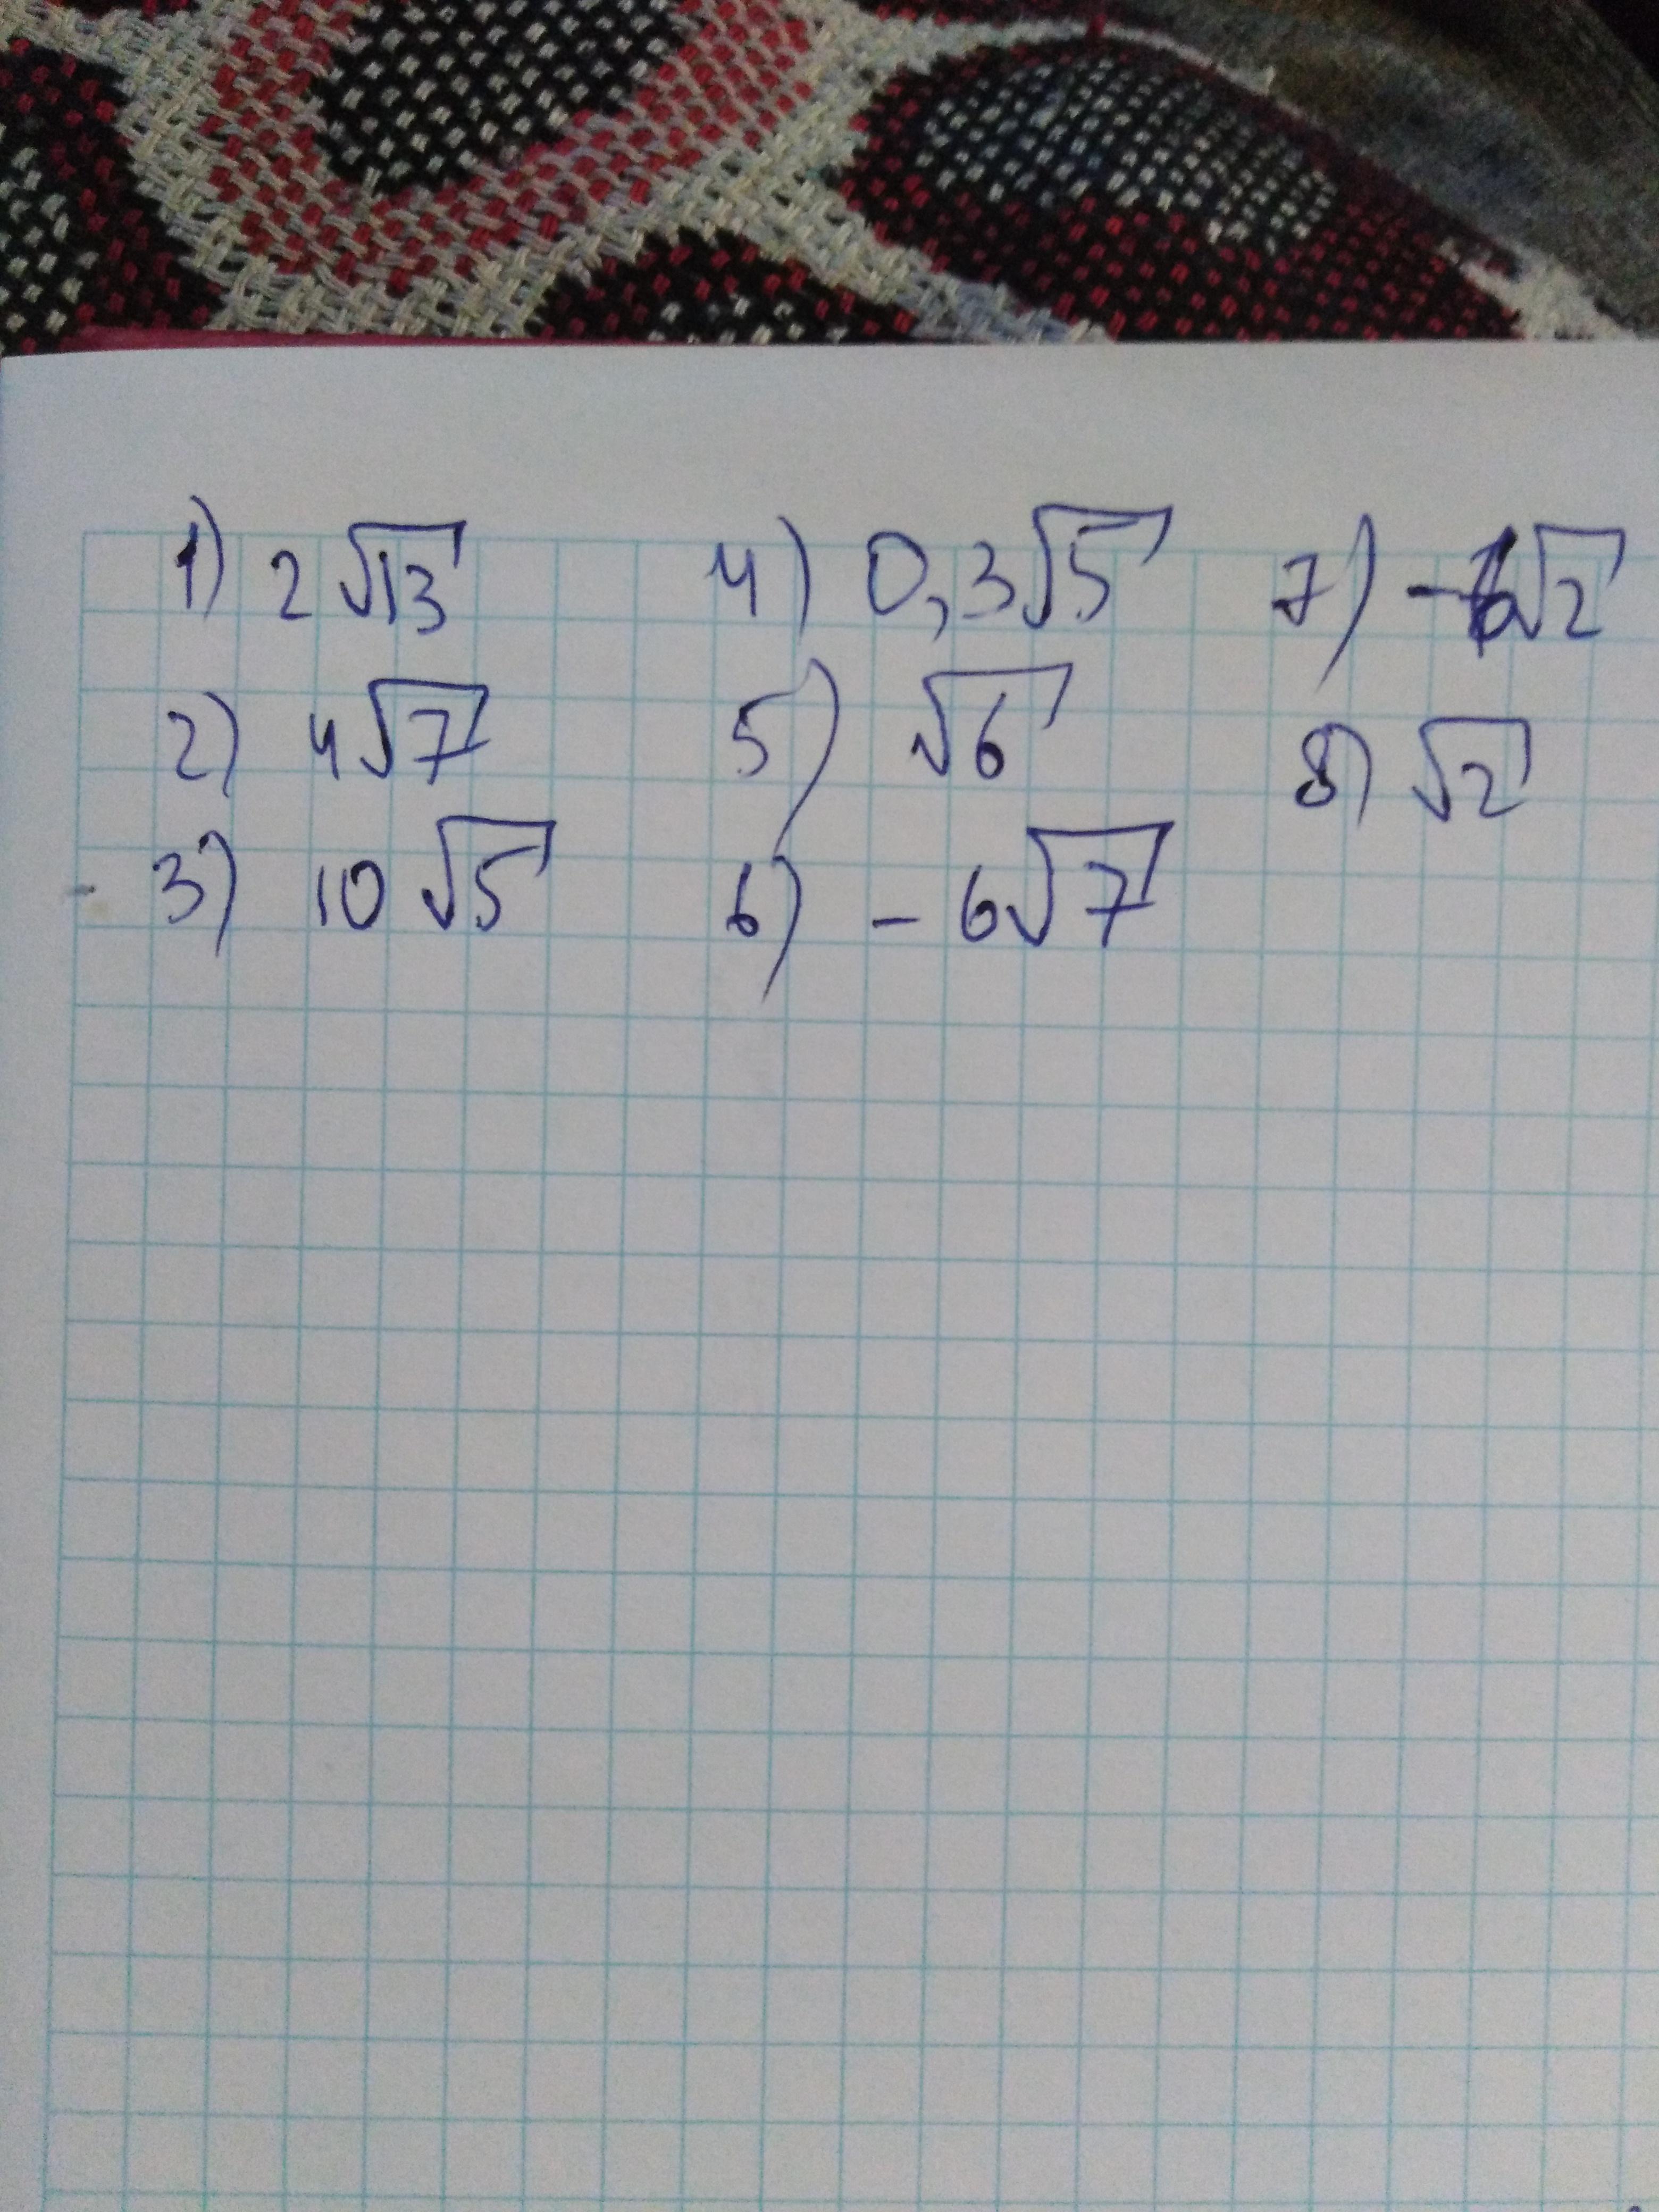 1) 2√13
2) 4√7
3) 10√5
4) 0,3√5
5) √6
6) - 6√7
7) -6√2
8) √2